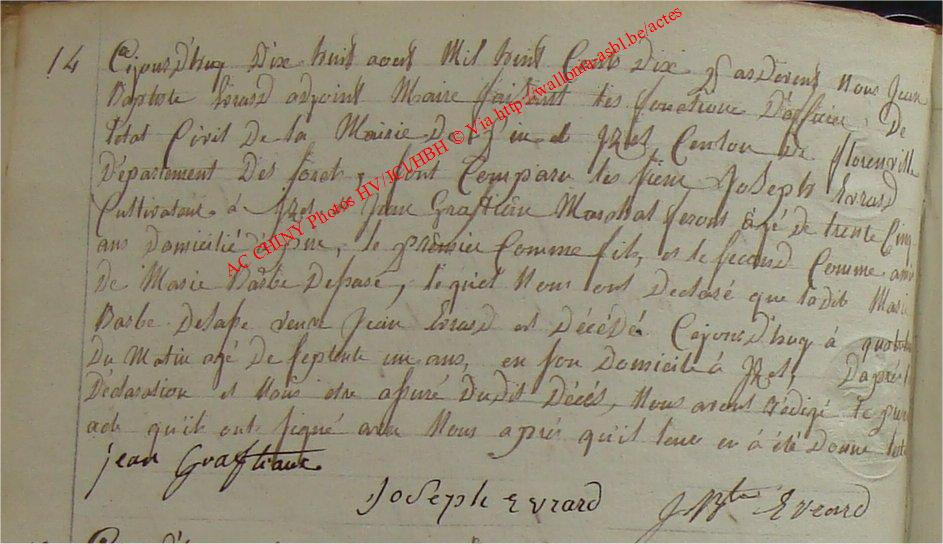 14 Cejourd'huy Dix huit aout Mil huit Cents Dix, pardevant nous Jean
Baptiste Evrard adjoint Maire faisant les fonctions D'officier De
l'état Civil De la Mairie De Izel Canton De florenville
Département Des foret, sont Comparu les sieur Joseph Evrard
Cultivateur à Izel et Jean Graftiaux Marchal ferant âgé de trente Cinq
ans Domicilié, le premier Comme fils, et le second Comme amis
De Marie Barbe Delsape, lequel Nous ont Declaré que ladit Marie
Barbe Delsape veuve Jean Evrard est Décédé Cejourd'huy à quatre
Du Matin agé De septente un ans, en son Domicile à Izel, D'après
Déclaration et Nous etre assuré Dudit Décès, Nous avons rédigé le
acte qu'ils ont signé avec Nous après qu'il leur en à été Donné
jean Graftiaux
Joseph Evrard JBte Evrard
AC CHINY Photos HV/JCL/HBH © Via http://wallonia-asbl.be/actes